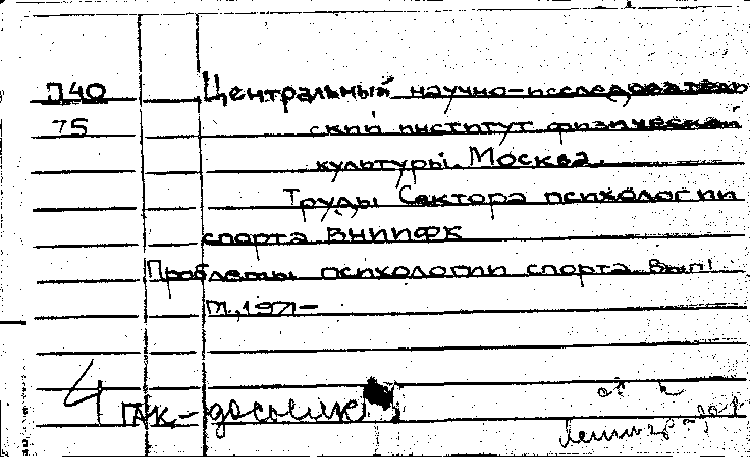 П40 Центральный научно-исследователь
75 ский институт физической
культуры. Москва.
Труды Сектора психологии
спорта ВНИИФК
Проблемы психологии спорта. Вып1
М., 1971-
4